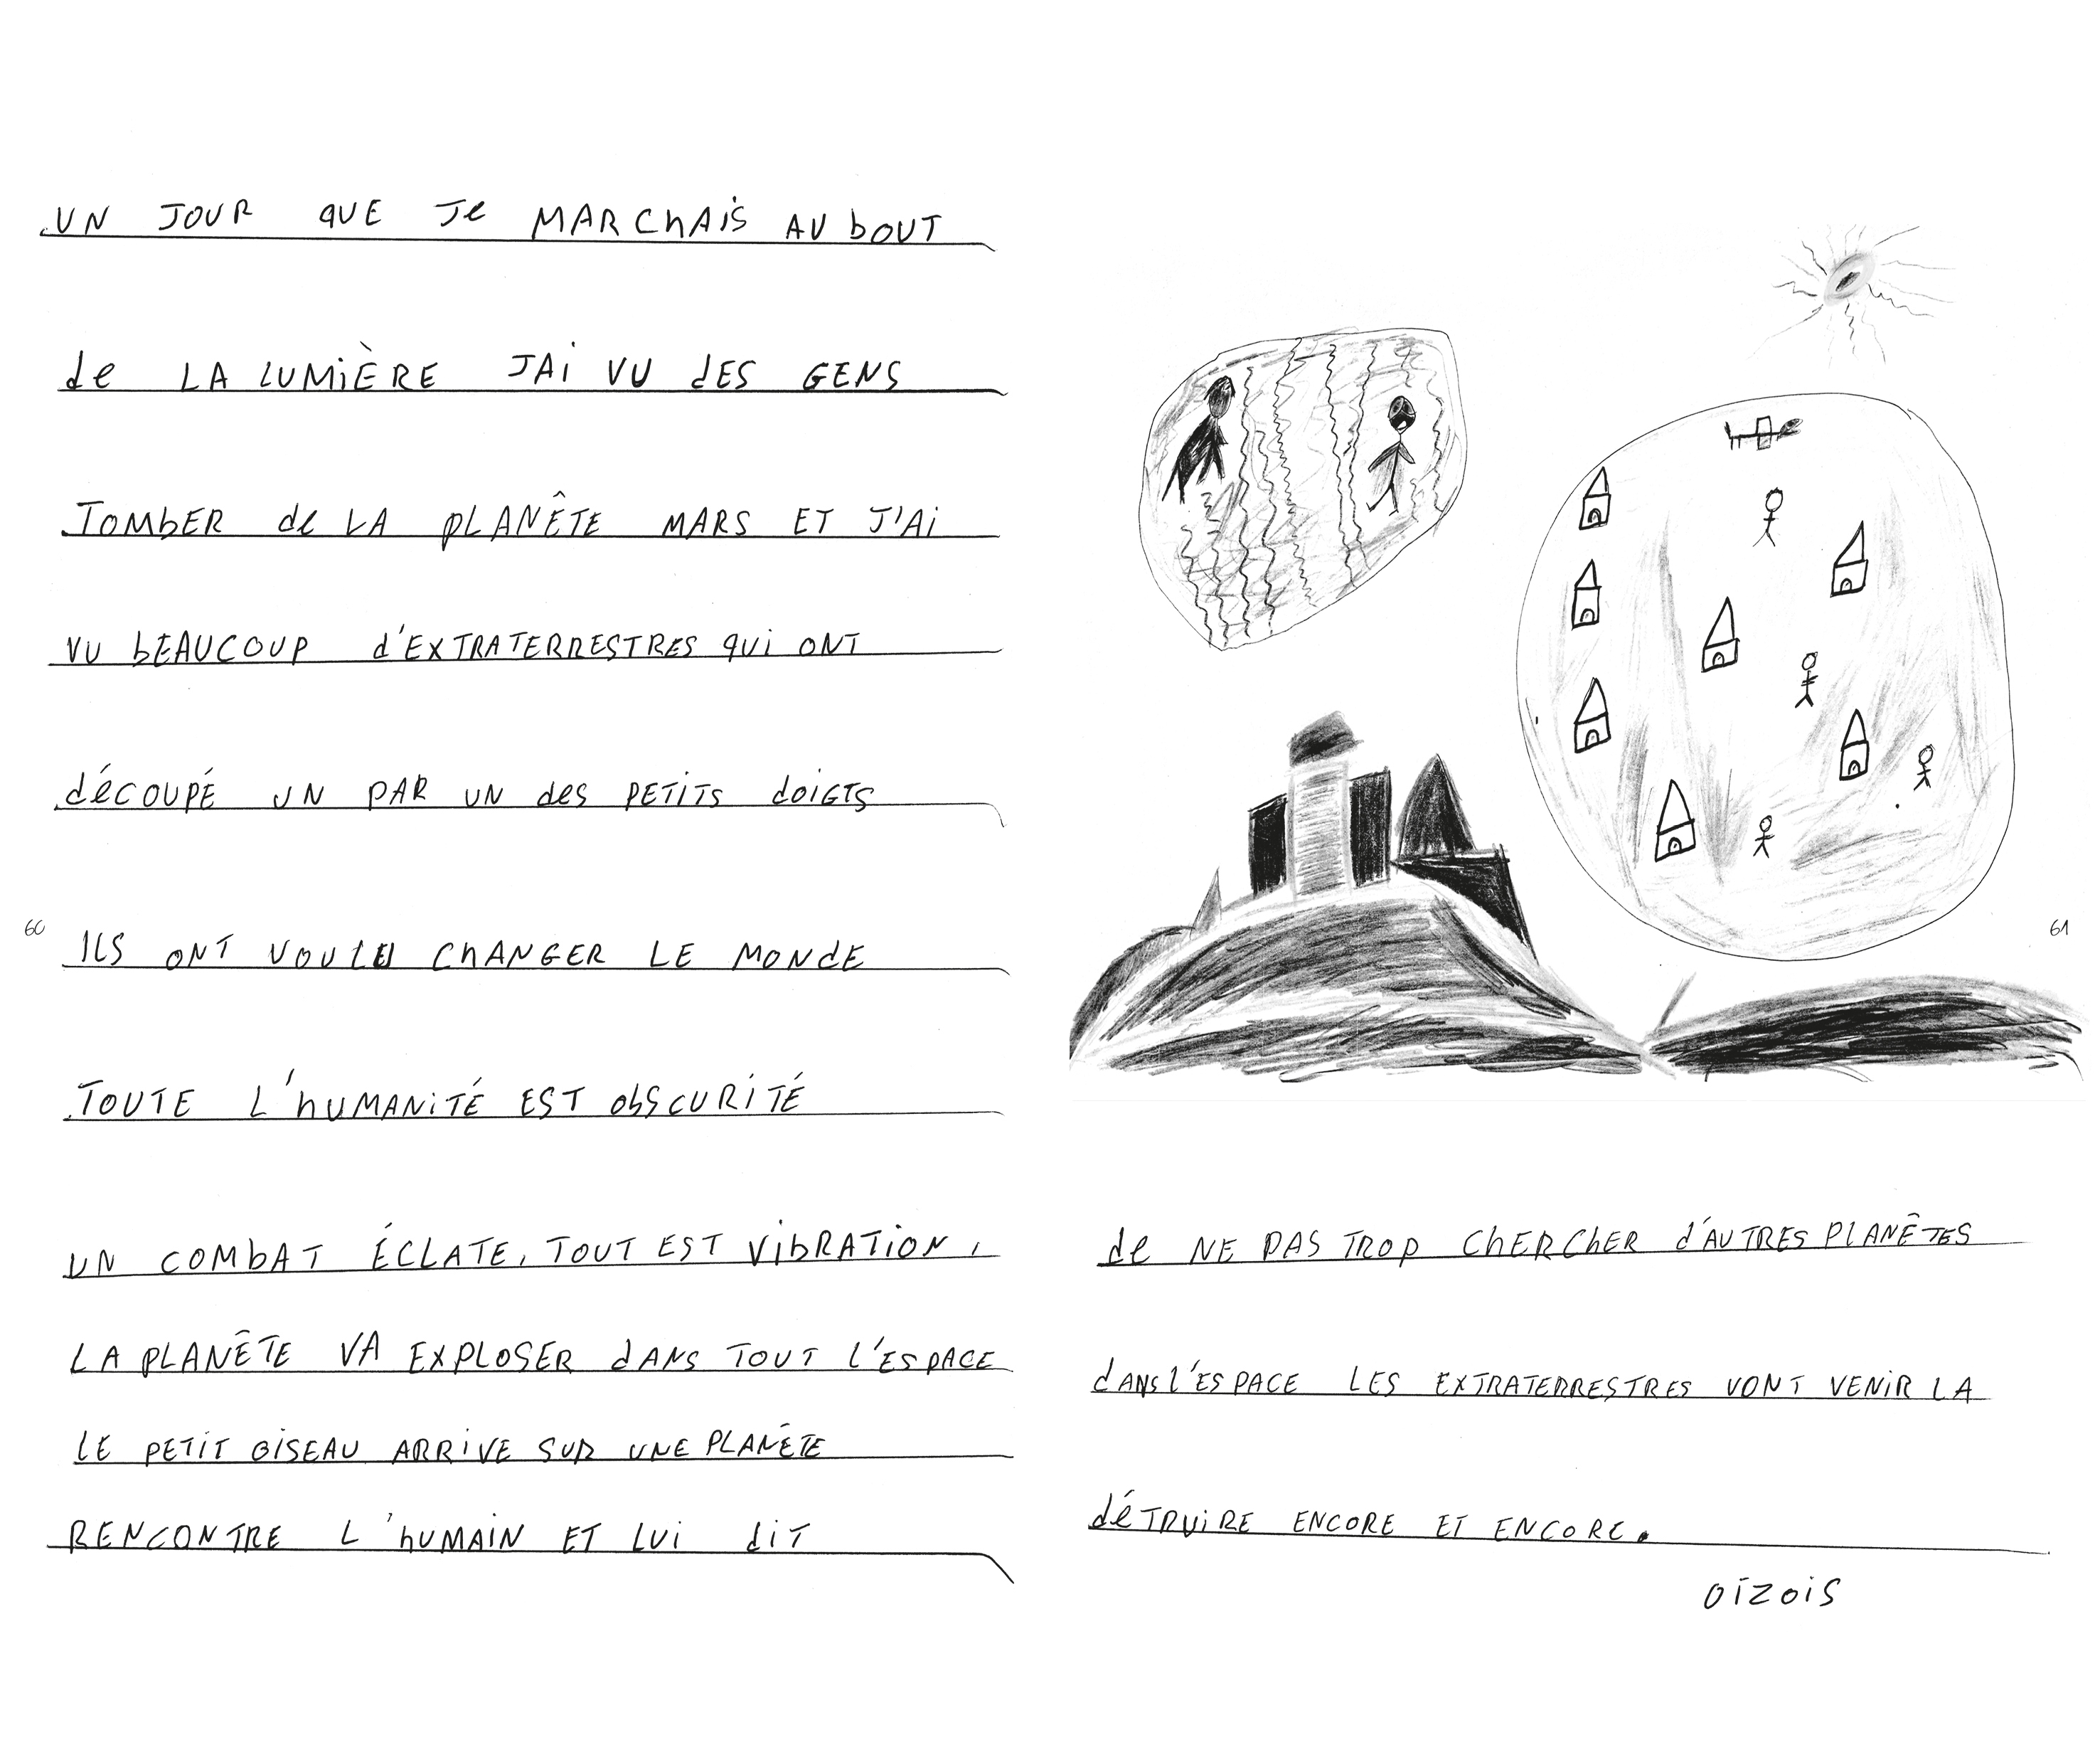 UN JOUR QUE Je MARChAiS AU bOUT
de LA LUMiÈRE JAi VU dES GENS
TOMbER de LA pLANÊTE MARS ET J'Ai
VU bEAUCOUP d'EXTRATERRESTRES qUi ONT
dÉCOUPÉ UN PAR UN des PETiTS dOiGTS
60
ILS ONT VOULU ChANGER LE MONdE
TOUTE L'hUMANiTÉ EST ObSCURiTÉ
UN COMbAT ÉCLATE, TOUT EST VibRATiON,
LA PLANÈTE VA EXPLOSER dANS TOUT L'ESPACE
LE PETiT OiSEAU ARRiVE SUR UNE PLANÈTE
RENCONTRE L'hUMAiN ET LUi diT
61
de NE PAS TROP ChERChER d'AUTRES PLANÊTES
dANS L'ESPACE LES EXTRATERRESTRES VONT VENiR LA
dÉTRUiRE ENCORE ET ENCORE.
OïZOiS